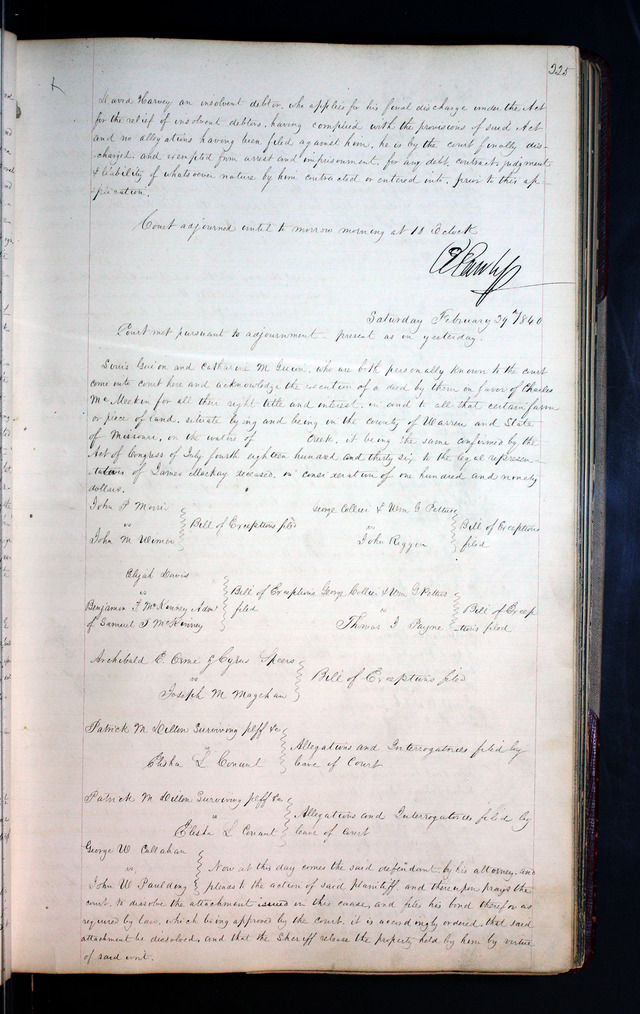 225
David Harvey an insolvent debtor, who applies for his final discharge under the Act
for the relief of insolvent debtors, having complied with the provisions of said Act
and no allegations having been filed against him, he is by the court finally dis-
charged and exempted from arrest and imprisonment, for any debt, contract, judgment
& liability of whatsoever nature by him contracted or entered into, prior to this ap-
plication.
Court adjourned until to morrow morning at 10 Oclock
Saturday February 29th 1840
Court met pursuant to adjournment. present as on yesterday.
Louis Guion and Catharine M Guion, who are both personally known to the court
come into court here and acknowledge the execution of a deed by them in favor of Charles
McMeekin for all their right title and interest in and to all that certain farm
or piece of land, situate lying and being in the County of Warren and State
of Missouri, on the waters of Creek, it being the same confirmed by the
Act of Congress of July fourth eighteen hundred and thirty six to the legal represen-
tatives of James Mackay deceased, in consideration of one hundred and ninety
dollars.
John P Morris
vs
John M Wimer
Bill of Exceptions filed
George Collier & Wm G Pettus
vs
John Riggin
Bill of Exceptions
filed
Elijah Davis
vs
Benjamin F McKenney Admr
of Samuel T McKenney
Bill of Exceptions
filed
George Collier & Wm G Pettus
vs
Thomas J Payne
Bill of Excep
tions filed
Archibald E. Orme & Cyrus Speers
vs
Joseph M Magehan
Bill of Exceptions filed
Patrick M Dillon Surviving plff &c
vs
Elisha L Conant
Allegations and Interrogatories filed by
leave of Court
Patrick M Dillon Surviving plff &c
vs
Elisha L Conant
Allegations and Interrogatories filed by
leave of Court
George W Callahan
vs
John W Paulding
Now at this day comes the said defendant by his attorney, and
pleads to the action of said plaintiff, and thereupon prays the
court, to dissolve the attachment issued in this cause, and files his bond therefor as
required by law, which being approved by the court, it is accordingly ordered, that said
attachment be dissolved, and that the Sheriff release the property held by him by virtue
of said writ.